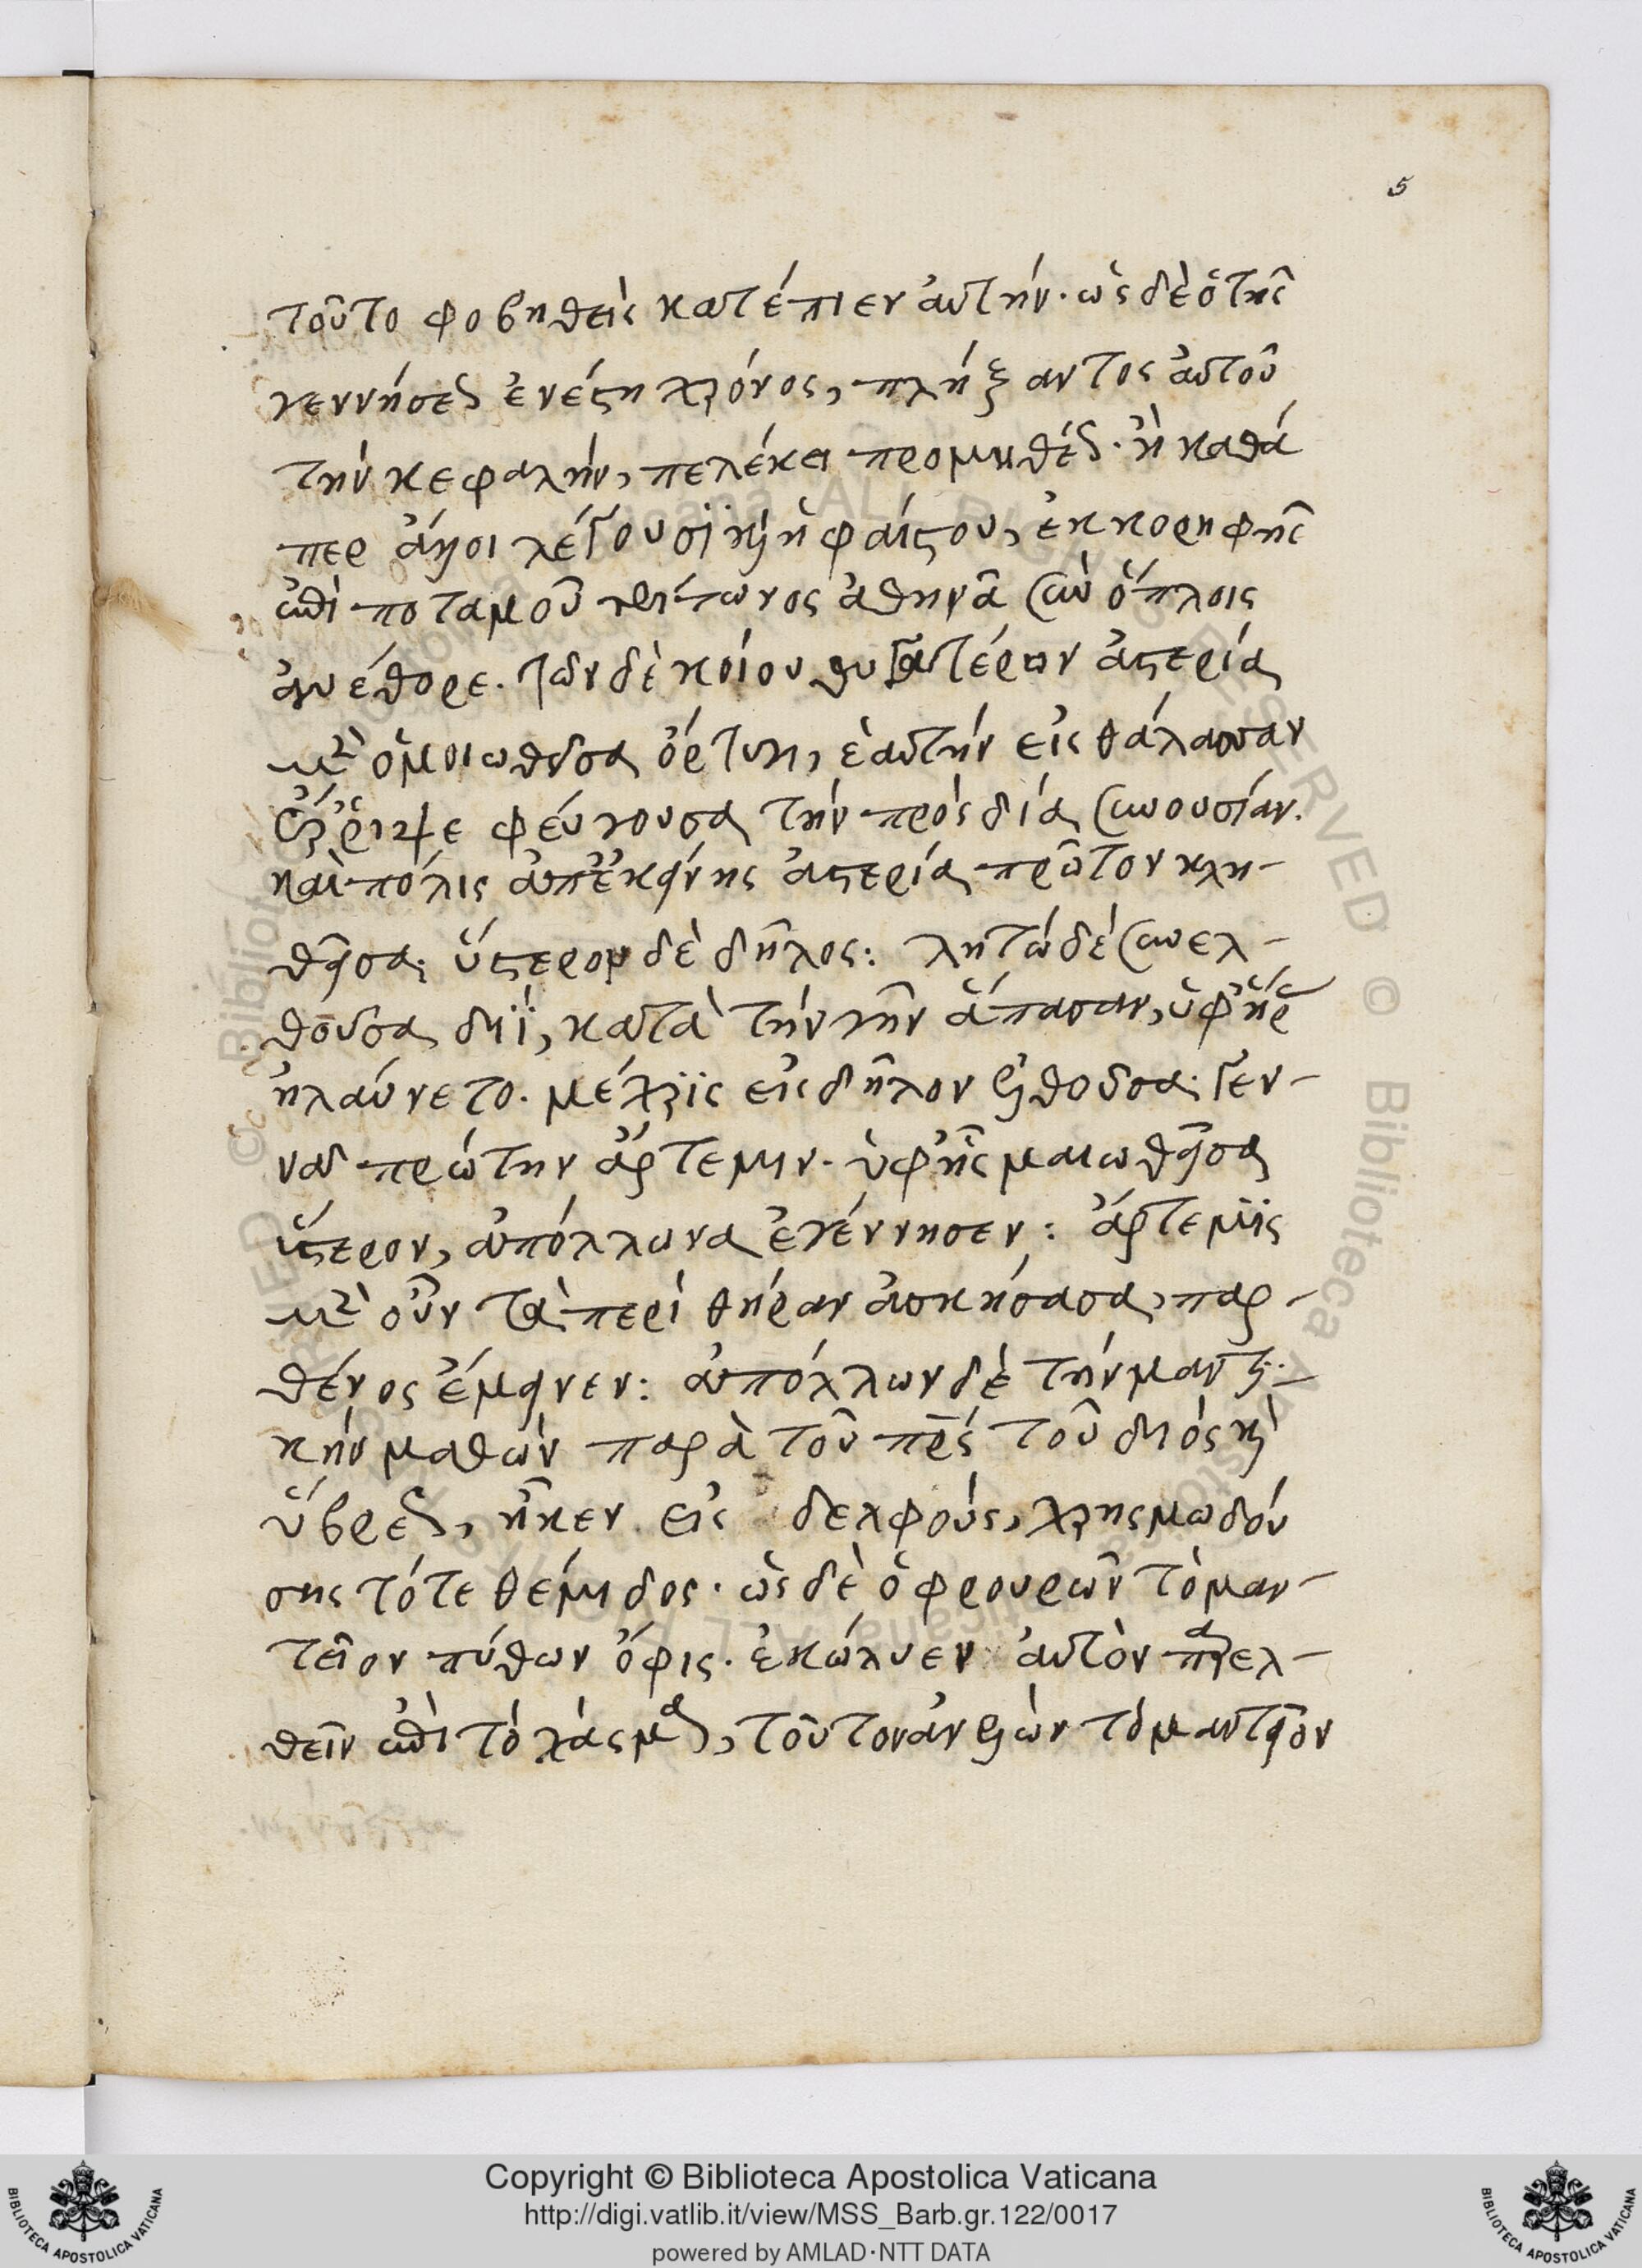 5
τοῦτο φοβηθεὶς κατέπιεν αὐτήν· ὡς δὲ ὁ τῆς
γεννήσεως ἐνέστη χρόνος, πλήξαντος αὐτοῦ
τὴν κεφαλὴν, πελέκει προμηθέως· ἢ καθά
περ ἄλλοι λέγουσϊ καὶ ἡφαίστου, ἐκ κορηφῆς
ἐπὶ ποταμοῦ τρίτωνος ἀθηνᾶ σὺν ὅπλοις
ἀνέθορε. τῶν δὲ κοίου θυγατέρων ἀστερία
μὲν ὁμοιωθεῖσα ὄρτυγι, ἑαυτὴν εἰς θάλασσαν
ἔρριψε φεύγουσα τὴν πρὸς δία συνουσίαν.
καὶ πόλις ἀπ' ἐκείνης ἀστερία πρῶτον κλη-
θεῖσα· ὕστερον δὲ δῆλος: λητὼ δὲ συνελ-
θοῦσα διῒ, κατὰ τὴν γῆν ἅπασαν, ὑφ' ἥρας
ἠλαύνετο. μέχρϊς εἰς δῆλον ἐλθοῦσα· γεν-
νᾶ πρώτην ἄρτεμιν· ὑφ' ἧς μαιωθεῖσα
ὕστερον, ἀπόλλωνα ἐγέννησεν: ἄρτεμϊς
μὲν οὖν τὰ περὶ θήραν ἀσκήσασα, παρ-
θένος ἔμεινεν: ἀπόλλων δὲ τὴν μαντι-
κὴν μαθὼν παρὰ τοῦ πρς τοῦ διὸς καὶ
ὕβρεως, ἧκεν εἰς δελφούς, χρησμῳδού
σης τότε θέμιδος· ὡς δὲ ὁ φρουρῶν τὸ μαν-
τεῖον πύθων ὄφις· ἐκώλυεν αὐτὸν παρελ-
θεῖν ἐπὶ τὸ χάσμα, τοῦτον ἀνελὼν τὸ μαντεῖον
Copyright © Biblioteca Apostolica Vaticana
http://digi.vatlib.it/view/MSS_Barb.gr.122/0017
powered by AMLAD·NTT DATA
BIBLIOTECA APOSTOLICA VATICANA
BIBLIOTECA APOSTOLICA VATICANA